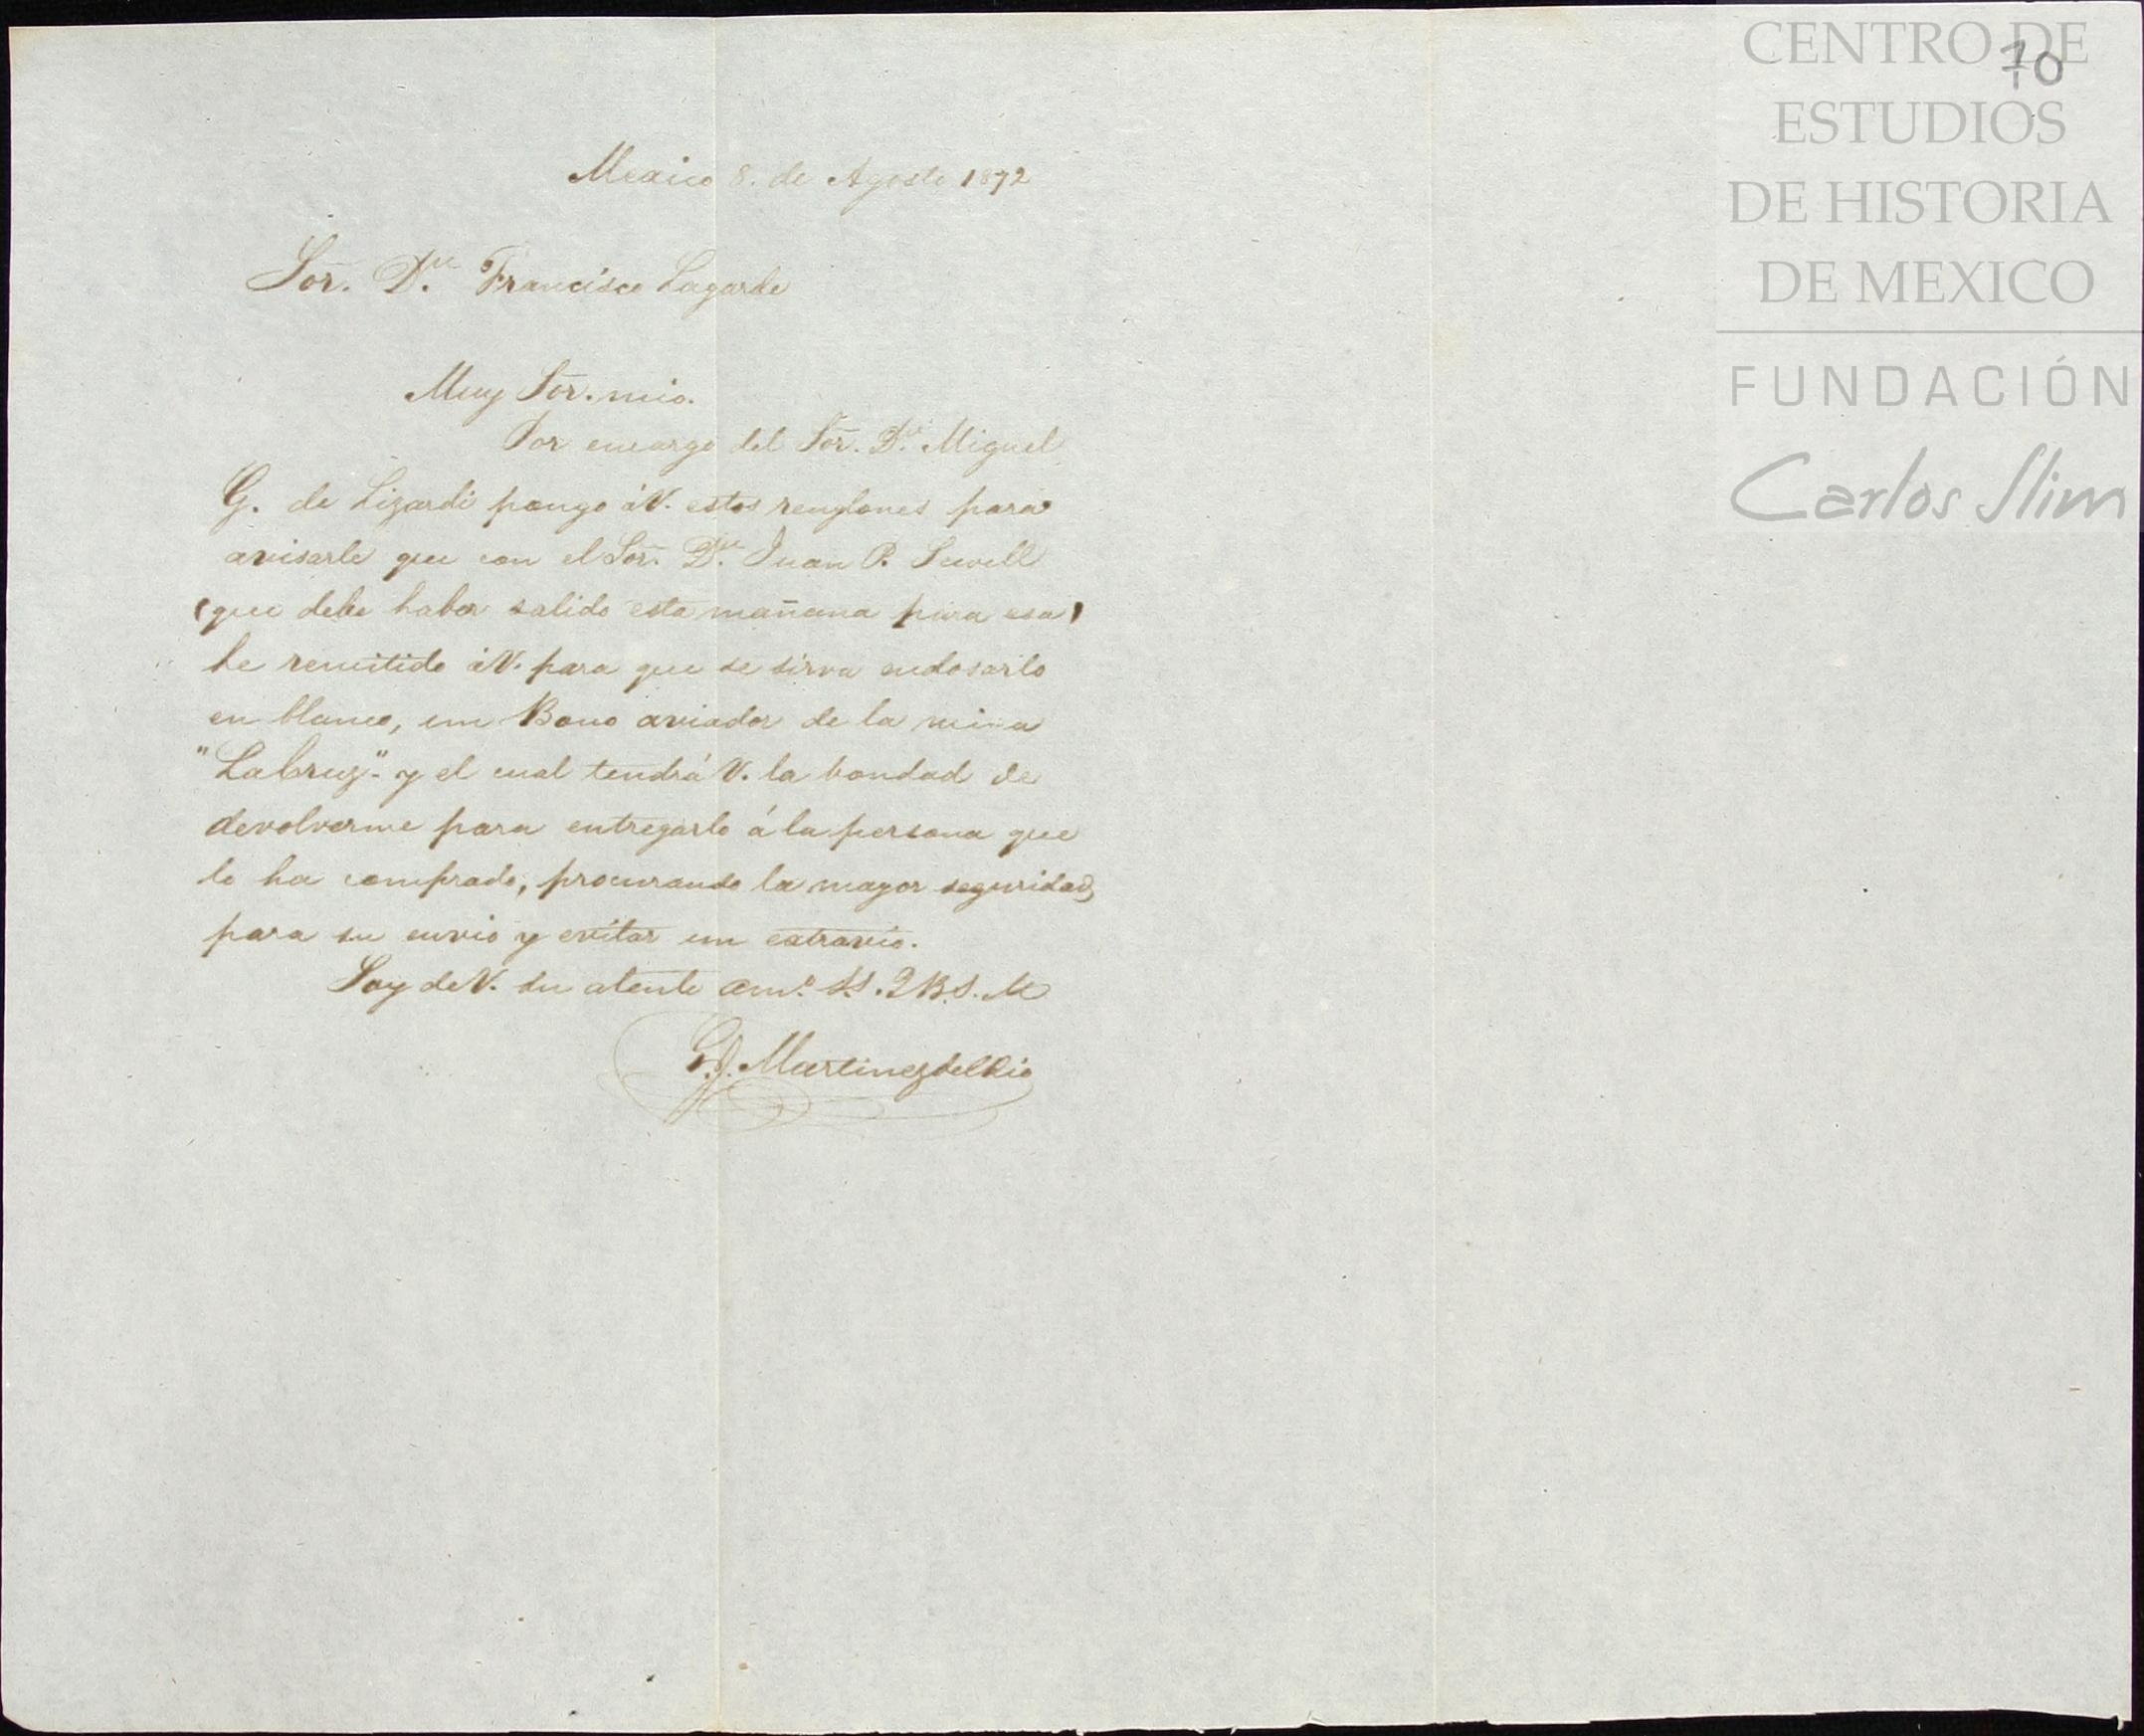 CENTRO DE
ESTUDIOS
DE HISTORIA
DE MEXICO
FUNDACIÓN
Carlos Slim
70
Mexico 8. de Agosto 1872
Sor. Dn. Francisco Lagarde
Muy Sor. mio.
Por encargo del Sor. Dn. Miguel
G. de Lizardi pongo á V. estos renglones para
avisarle que con el Sor. Dn. Juan P. Sewell
(que debe haber salido esta mañana para esa)
he remitido á V. para que se sirva endosarlo
en blanco, un Bono aviador de la mina
"La Cruz" y el cual tendrá V. la bondad de
devolverme para entregarlo á la persona que
lo ha comprado, procurando la mayor seguridad
para su envio y evitar un extravio.
Soy de V. su atento amo. S.S. Q B.S. M
G. J. Martinez del Rio